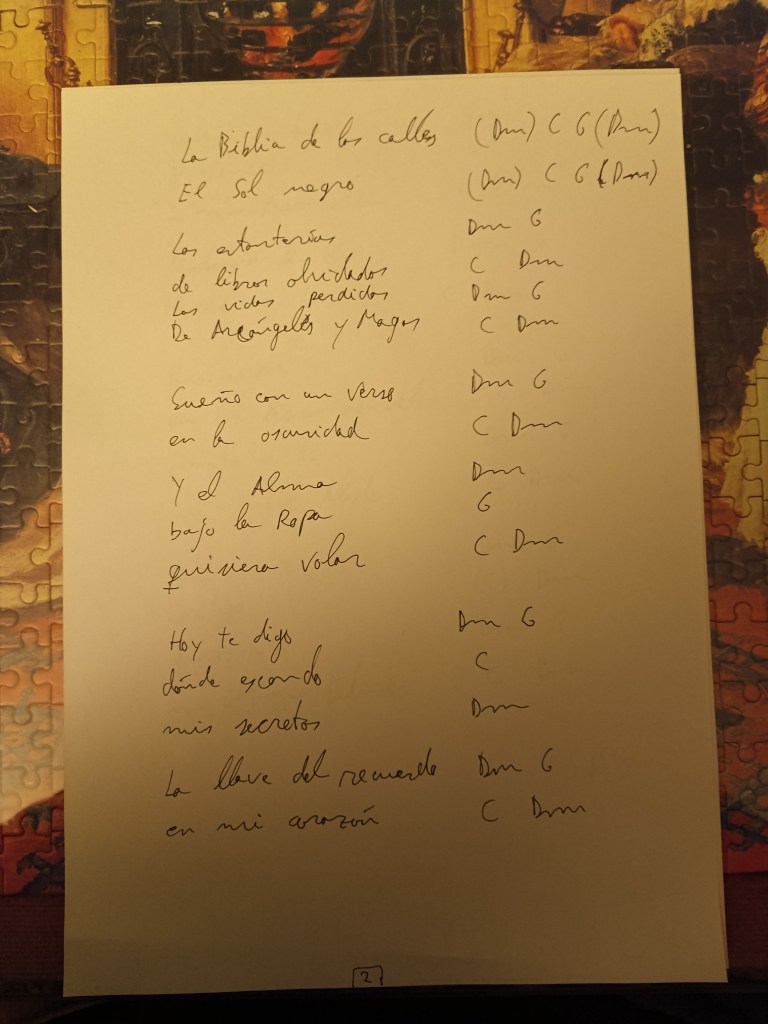 La Biblia de las calles (Dm) C G (Dm)
El Sol negro (Dm) C G (Dm)
Las estanterías Dm G
de libros olvidados C Dm
Las vidas perdidas Dm G
De Arcángeles y Magos C Dm
Sueño con un verso Dm G
en la oscuridad C Dm
Y el Alma Dm
bajo la Ropa G
quisiera volar C Dm
Hoy te digo Dm G
dónde escondo C
mis secretos Dm
La llave del recuerdo Dm G
en mi corazón C Dm
2